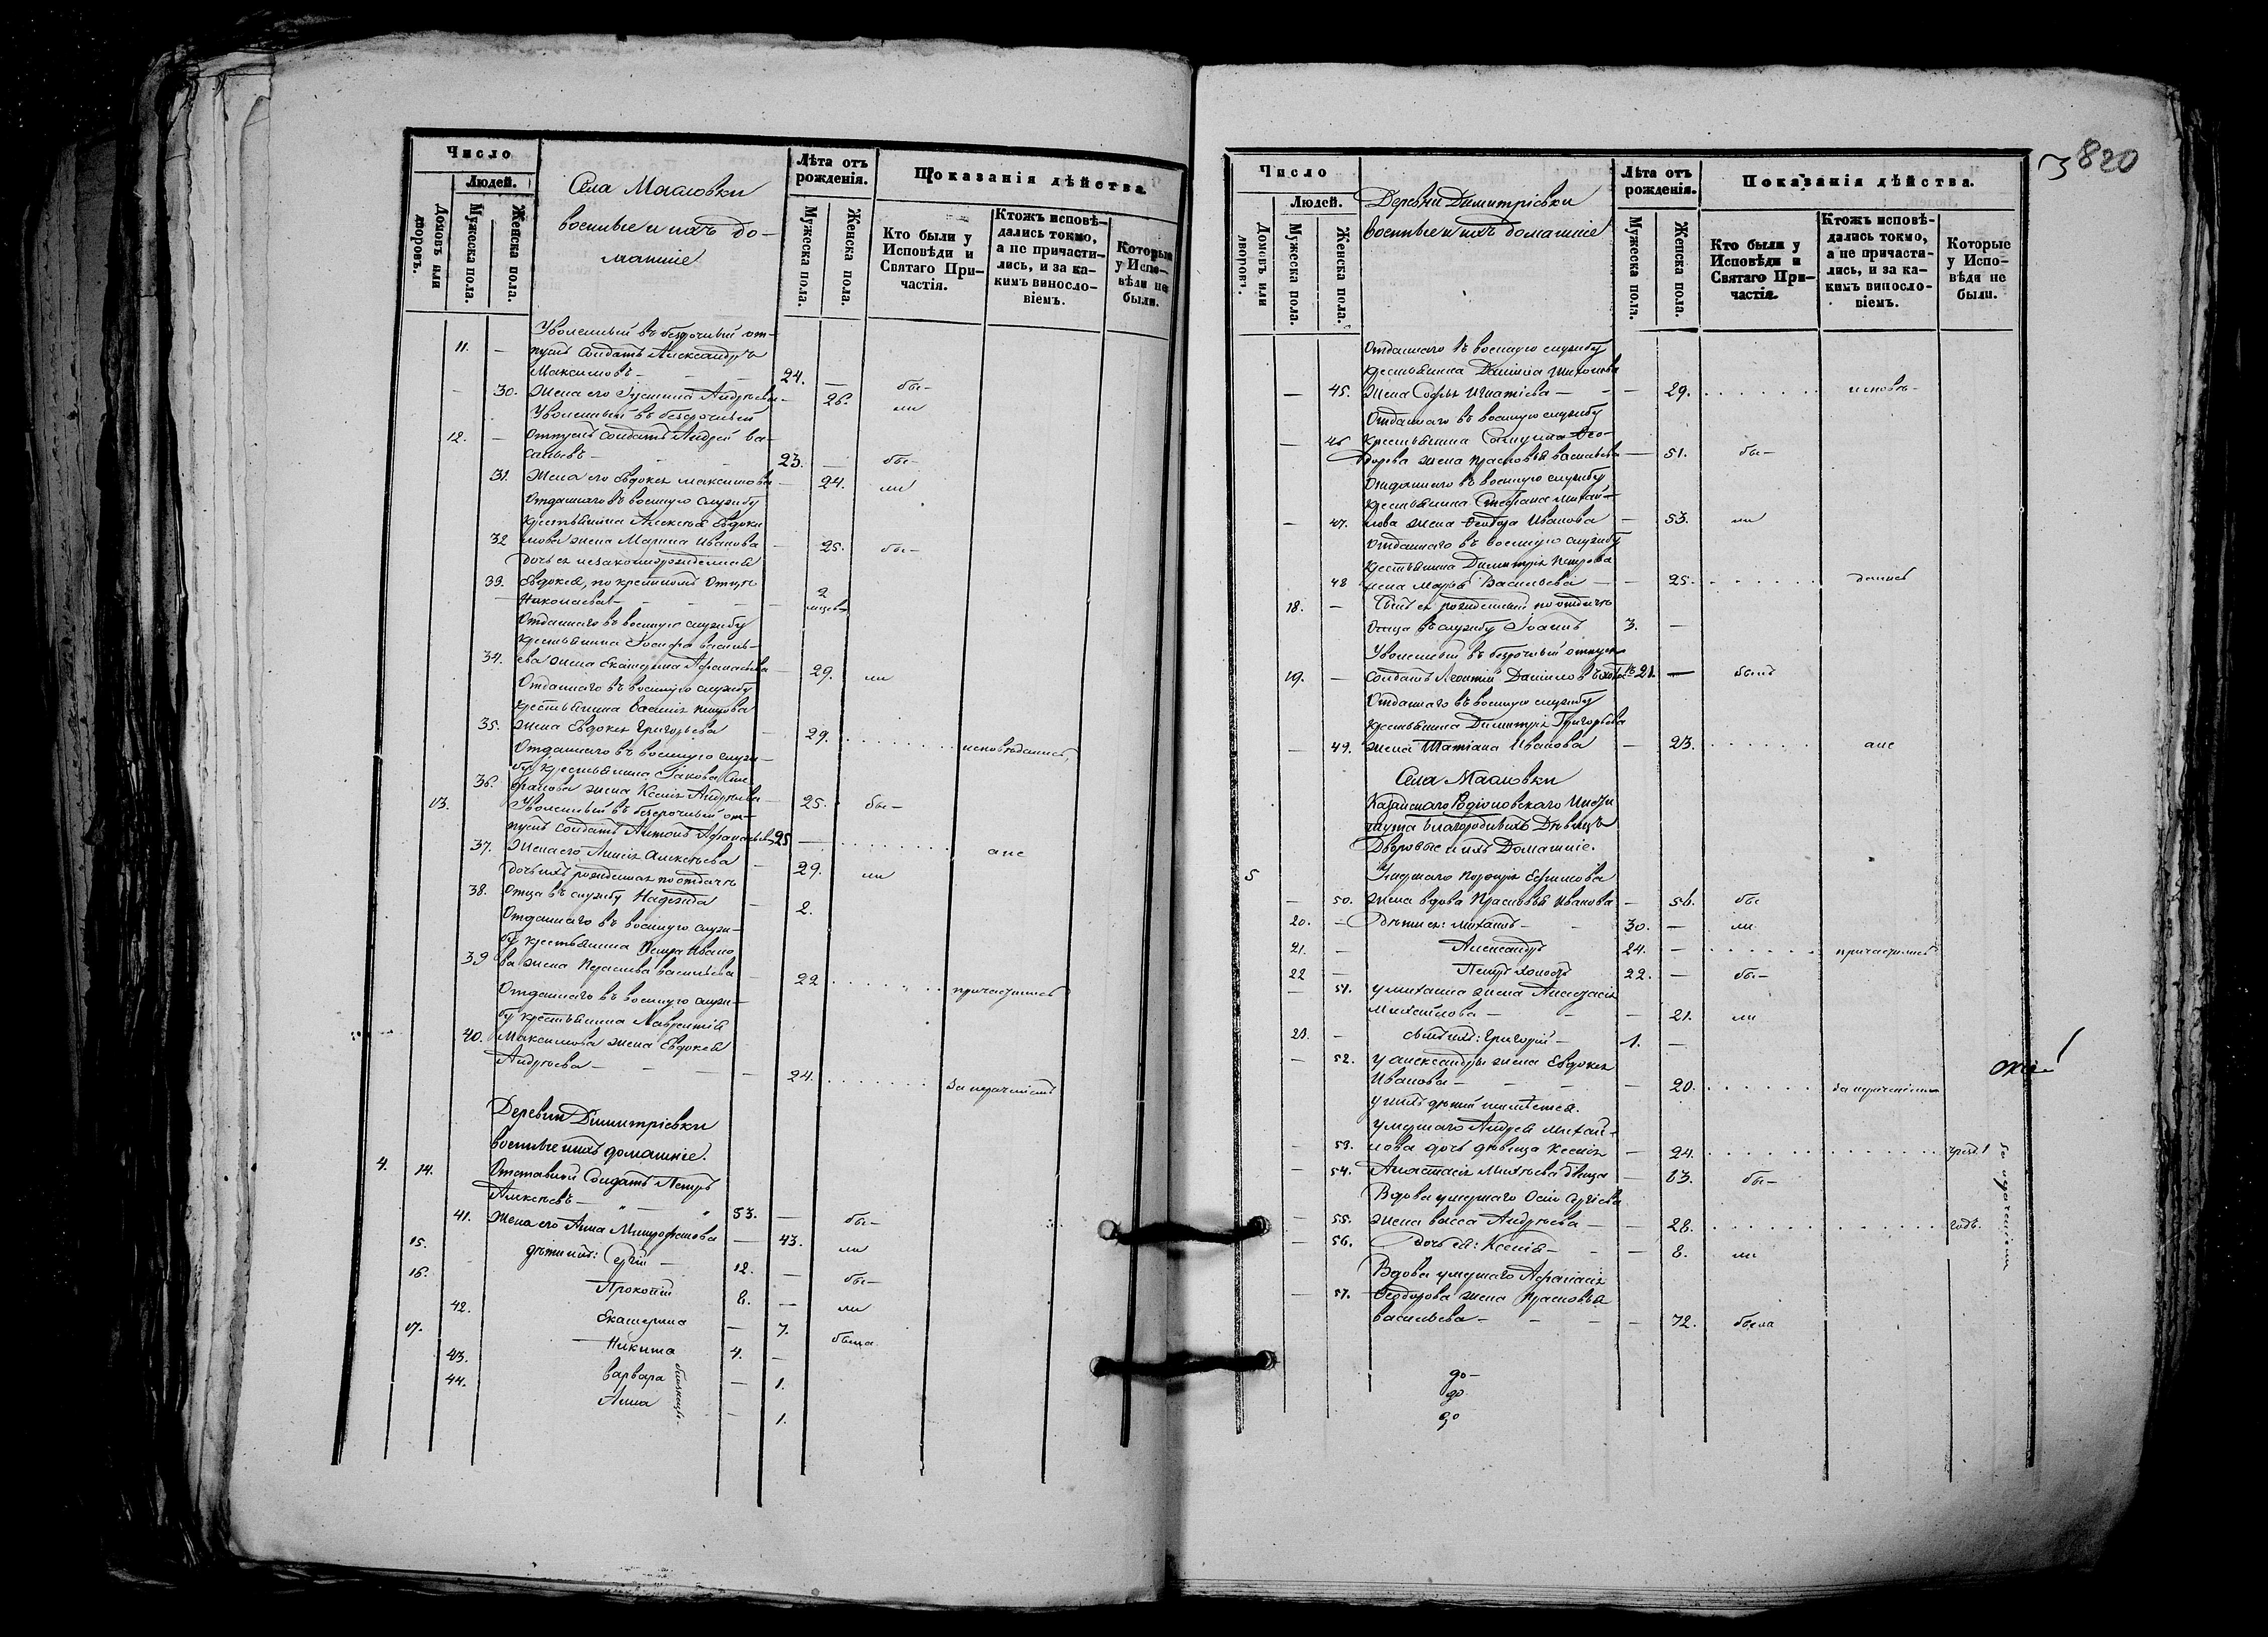 Число
Людей.
Домовъ или дворовъ.
Мужеска пола.
Женска пола.
Села Масловки
военные и ихъ до-
машніе
Лѣта отъ рожденія.
Мужеска пола.
Женска пола.
Показанія дѣйства.
Кто были у Исповѣди и Святаго При-частія.
Ктожъ исповѣ-дались токмо, а не причасти-лись, и за ка-кимъ винословіемъ.
Которые у Испо-вѣди не были.
Уволенный въ безсрочный от-
11. — пускъ солдатъ Александръ
Максимовъ — 24. — бы-
30. Жена его Іустина Андреева — 26. ли
Уволенный въ безсрочный
12. — отпускъ солдатъ Андрей Ва-
сильевъ — 23. — бы-
31. Жена его Евдокія Максимова — 24. ли
Отданнаго въ военную службу
крестьянина Алексѣя Евдоки
32 мова жена Марина Иванова — 25. бы-
дочь ея незаконнорожденная
33. Евдокія, по крестномъ отцѣ
Николаева — 2
Отданнаго въ военную службу
крестьянина Іосифа Василь-
34. ева жена Екатерина Афанасьева — 29. ли
Отданнаго въ военную службу
крестьянина Василія
35. жена Евдокія Григорьева — 29. исповѣдались,
Отданнаго въ военную служ-
бу крестьянина Іакова Сте-
36. фанова жена Ксенія Андреева — 25. бы-
13. Уволенный въ безсрочный от-
пускъ солдатъ Антонъ Афанасьевъ 25 — а не
37. Жена его Анисія Алексѣева — 29. ли
дочь ихъ рожденная по отдачѣ
38. отца въ службу Надежда — 2.
Отданнаго въ военную служ-
бу крестьянина Петра Ивано
39 ва жена Параскева Васильева — 22 причастились
Отданнаго въ военную служ-
бу крестьянина Лаврентія
40. Максимова жена Евдокія
Андреева — 24. за нерачениемъ
Деревни Димитріевки
военные и ихъ домашніе.
4. 14. Отставной Солдатъ Петръ
Алексѣевъ — 53. — бы-
41. Жена его Анна Митрофанова — 43. ли
15. дѣти ихъ: Сергій — 12. — бы-
16. Прокопій 8. — ли
42. Екатерина — 7. была
17. Никита 4. —
43. Варвара — 1.
близнецы
44. Анна — 1.
820
Число
Людей.
Домовъ или дворовъ.
Мужеска пола.
Женска пола.
Деревни Димитріевки
военные и ихъ домашніе
Лѣта отъ рожденія.
Мужеска пола.
Женска пола.
Показанія дѣйства.
Кто были у Исповѣди и Святаго При-частія.
Ктожъ исповѣ-дались токмо, а не причасти-лись, и за ка-кимъ винословіемъ.
Которые у Испо-вѣди не были.
Отданнаго въ военную службу
крестьянина Даніила Тихонова
— 45. жена Софья Игнатіева — 29. исповѣ-
Отданнаго въ военную службу
— 46 крестьянина Самуила Ѳео-
дорова жена Прасковья Васильева — 51. бы-
Отданнаго въ военную службу
крестьянина Стефана Михай-
— 47. лова жена Ѳеодора Иванова — 53. ли
Отданнаго въ военную службу
крестьянина Димитрія Петрова
48 жена Марѳа Васильева — 25. дались
18. — Сынъ ея рожденный по отдачѣ
отца въ службу Іоаннъ 3. —
Уволенный въ безсрочный отпускъ
19. — солдатъ Леонтій Даниловъ холостъ 21. — былъ
Отданнаго въ военную службу
крестьянина Димитрія Григорьева
— 49. жена Татіана Иванова — 23. а не
Села Масловки
Казанскаго Родіоновскаго Инсти
тута благородныхъ Дѣвицъ
Дворовые и ихъ Домашніе.
5 Умершаго Порфирія Ефимова
— 50. жена вдова Прасковья Иванова — 56. бы
20. — дѣти ея: Михаилъ — 30. — ли
21. — Александръ 24. — причастились
22 — Петръ холостъ 22. — бы-
— 51. у Михаила жена Анастасія
Михайлова — 21. ли
23. — сынъ ихъ: Григорій — 1. —
— 52. у Александра жена Евдокія
Иванова — 20. за нерачениемъ
у нихъ дѣтей не имѣется.
умершаго Андрея Михай-
— 53. лова дочь дѣвица Ксенія — 24. 1
— 54. Анастасія дѣвица — 63. бы-
Вдова умершаго Осипа Сергѣева
— 55. жена Васса Андреева — 28. годъ.
за нерачениемъ
— 56. дочь ея: Ксенія — 8. ли
Вдова умершаго Афанасія
— 57. Ѳеодорова жена Прасковья
Васильева — 72. была
до-
до
до